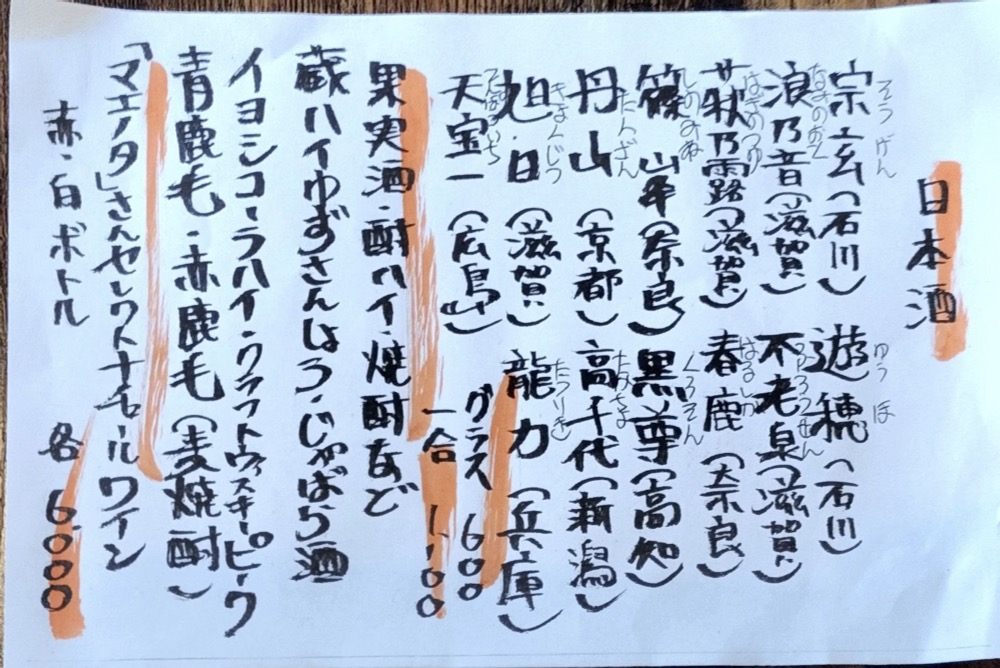 日本酒
宗玄(石川) 遊穂(石川)
そうげん ゆうほ
浪乃音(滋賀) 不老泉(滋賀)
なみのおと ふろうせん
萩乃露(滋賀) 春鹿(奈良)
はぎのつゆ はるしか
篠峯(奈良) 黒尊(高知)
しのみね くろそん
丹山(京都) 高千代(新潟)
たんざん たかちよ
旭日(滋賀) 龍力(兵庫)
きょくじつ たつりき
天宝一(広島)
てんぽういち
グラス 600
一合 1,100
果実酒・酎ハイ・焼酎など
蔵ハイゆず・さんしょう・じゃばら酒
イヨシコーラハイ・クラフトウィスキーピーク
青鹿毛・赤鹿毛(麦焼酎)
「マエノタ」さんセレクトナチュールワイン
赤・白ボトル 各 6,000